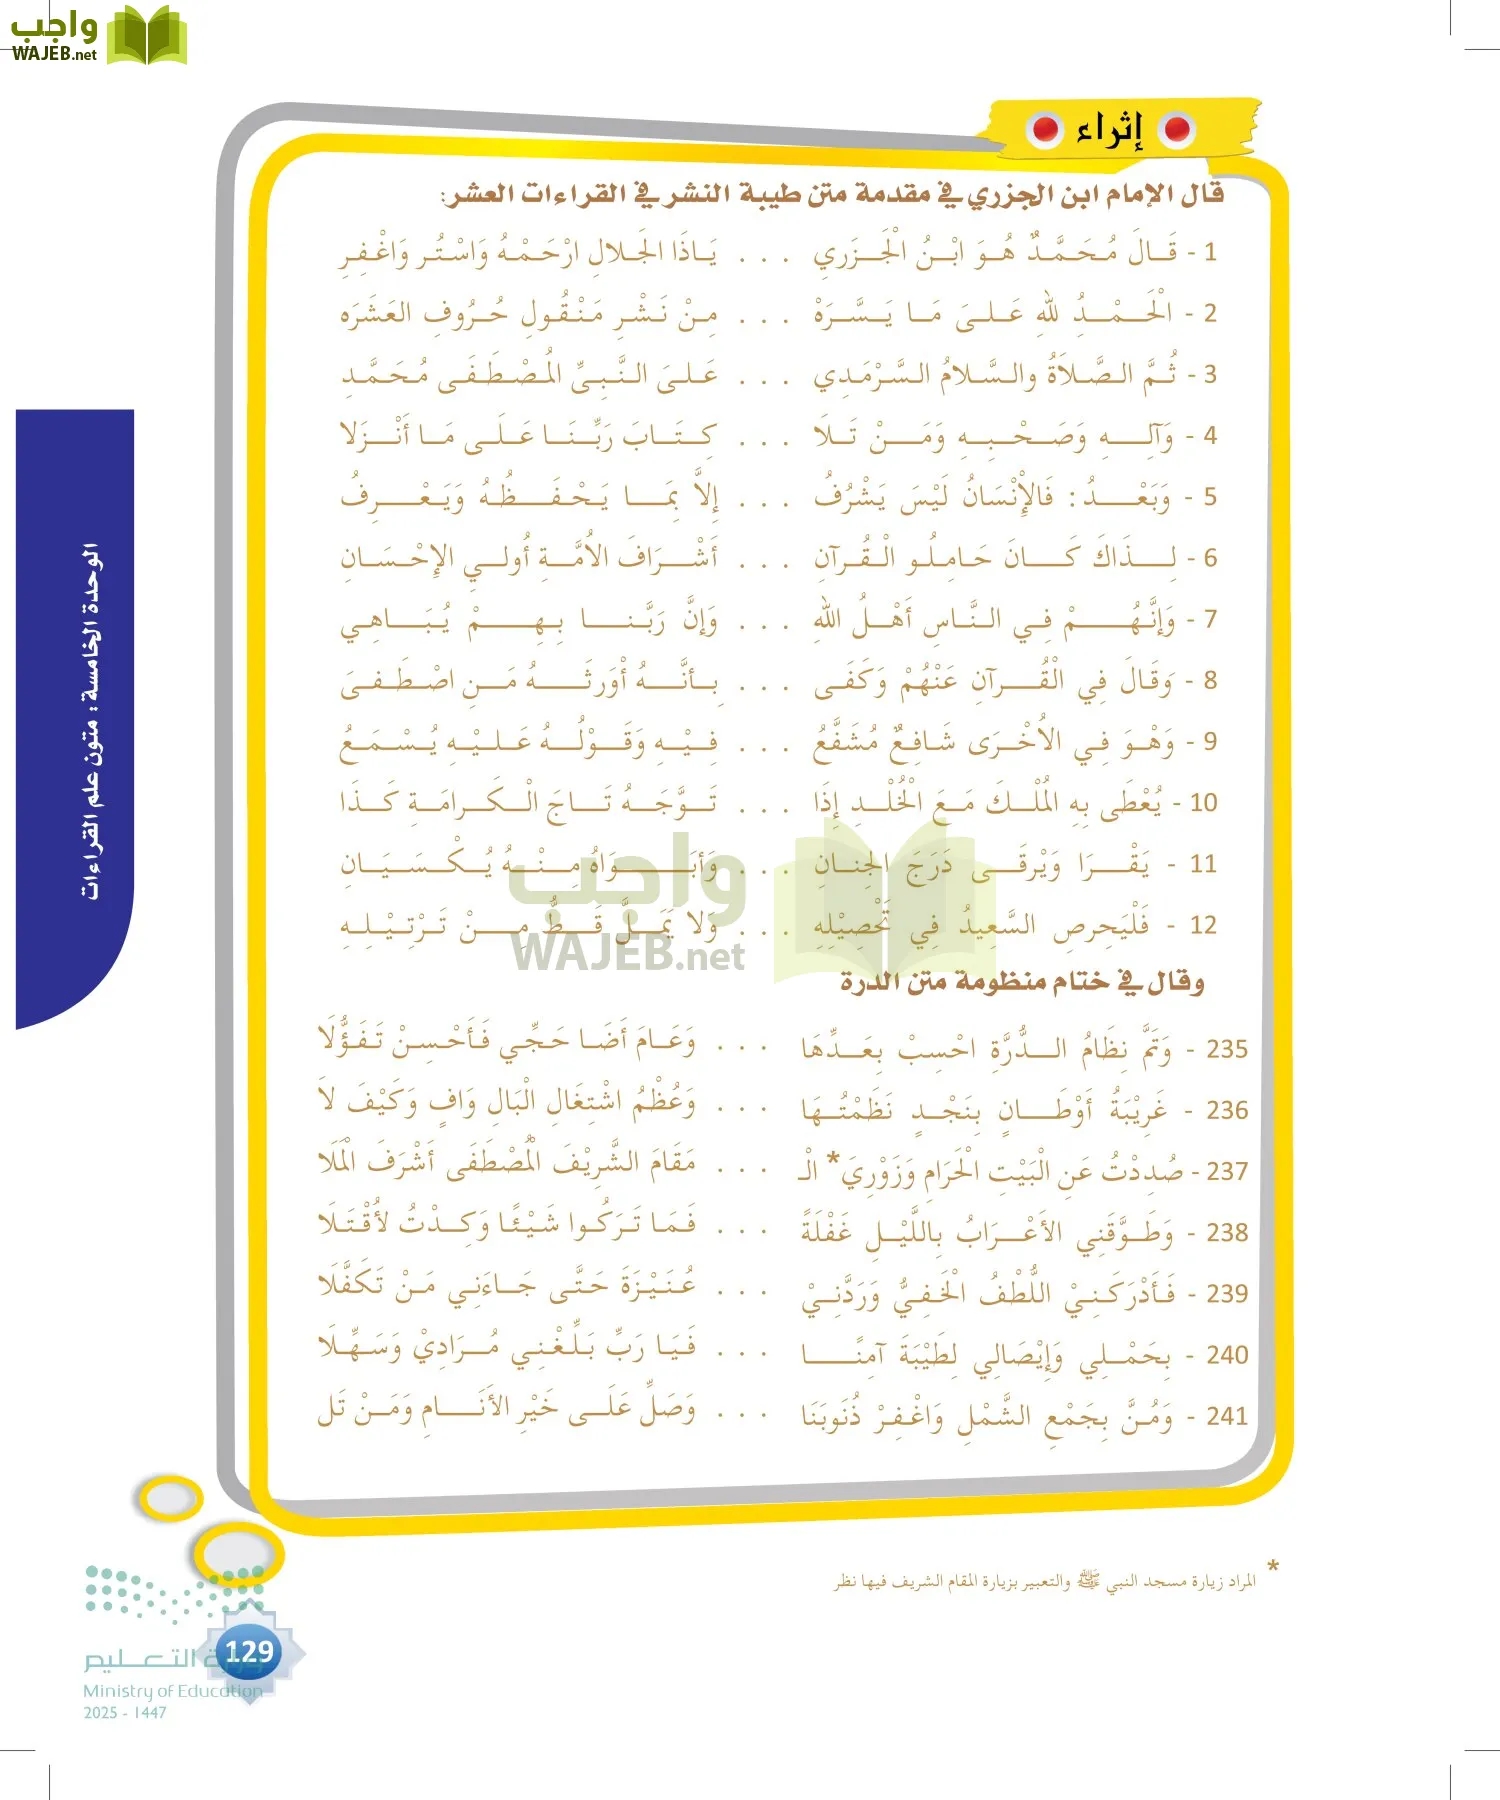 واجب
WAJEB.net
إثراء
قال الإمام ابن الجزري في مقدمة متن طيبة النشر في القراءات العشر:
1 - قَالَ مُحَمَّدٌ هُوَ ابْنُ الْجَزَرِي . . . يَاذَا الجَلالِ ارْحَمْهُ وَاسْتُر وَاغْفِرِ
2 - الْحَمْدُ للهِ عَلىَ مَا يَسَّرَهْ . . . مِنْ نَشْرِ مَنْقُولِ حُرُوفِ العَشَرَه
3 - ثُمَّ الصَّلاَةُ والسَّلامُ السَّرْمَدِي . . . عَلىَ النَّبِىِّ المُصْطَفَى مُحَمَّدِ
4 - وَآلِهِ وَصَحْبِهِ وَمَنْ تَلَا . . . كِتَابَ رَبِّنَا عَلَى مَا أَنْزَلا
5 - وَبَعْدُ : فَالإِنْسَانُ لَيْسَ يَشْرُفُ . . . إلاَّ بِمَا يَحْفَظُهُ وَيَعْرِفُ
6 - لِذَاكَ كَانَ حَامِلُو الْقُرآنِ . . . أَشْرَافَ الأُمَّةِ أُولي الإِحْسَانِ
7 - وَإنَّهُمْ فِي النَّاسِ أَهْلُ اللهِ . . . وَإنَّ رَبَّنا بِهِمْ يُبَاهِي
8 - وَقَالَ فِي الْقُرآنِ عَنْهُمْ وَكَفَى . . . بِأنَّهُ أوْرَثَهُ مَنِ اصْطَفىَ
9 - وَهْوَ فِي الأُخْرَى شَافِعٌ مُشَفَّعُ . . . فِيْهِ وَقَوْلُهُ عَلَيْهِ يُسْمَعُ
10 - يُعْطَى بِهِ المُلْكَ مَعَ الْخُلْدِ إِذَا . . . تَوَّجَهُ تَاجَ الْكَرامَةِ كَذَا
11 - يَقْرَا وَيْرقَى دَرَجَ الجِنانِ . . . وَأبَوَاهُ مِنْهُ يُكْسَيَانِ
12 - فَلْيَحرِصِ السَّعِيدُ فِي تَحْصِيْلِهِ . . . وَلا يَمَلَّ قَطُّ مِنْ تَرْتِيْلِهِ
واجب
WAJEB.net
وقال في ختام منظومة متن الدرة
235 - وَتَمَّ نِظَامُ الدُّرَّةِ احْسِبْ بِعَدِّهَا . . . وَعَامَ أَضَا حَجِّي فَأَحْسِنْ تَفَوُّلَا
236 - غَرِيْبَةُ أوْطَانٍ بِنَجْدٍ نَظَمْتُهَا . . . وَعُظْمُ اشْتِغَالِ الْبَالِ وَافٍ وَكَيْفَ لاَ
237 - صُدِدْتُ عَنِ الْبَيْتِ الْحَرَامِ وَزَوْرِيَ* الْـ . . . مَقَامَ الشَّرِيْفَ الْمُصْطَفَى أَشْرَفَ الْمَلَا
238 - وَطَوَّقَنِي الأَعْرَابُ بِاللَّيْلِ غَفْلَةً . . . فَمَا تَرَكُوا شَيْئًا وَكِدْتُ لأُقْتَلَا
239 - فَأَدْرَكَنِيْ اللُّطْفُ الْخَفِيُّ وَرَدَّنِيْ . . . عُنَيْزَةَ حَتَّى جَاءَنِي مَنْ تَكَفَّلَا
240 - بِحَمْلِي وَإِيْصَالِي لِطَيْبَةَ آمِنًا . . . فَيَا رَبِّ بَلِّغْنِي مُرَادِيْ وَسَهِّلَا
241 - وَمُنَّ بِجَمْعِ الشَّمْلِ وَاغْفِرْ ذُنوبَنَا . . . وَصَلِّ عَلَى خَيْرِ الأَنَامِ وَمَنْ تَل
الوحدة الخامسة : متون علم القراءات
* المراد زيارة مسجد النبي ﷺ والتعبير بزيارة المقام الشريف فيها نظر
129
وزارة التعليم
Ministry of Education
2025 - 1447